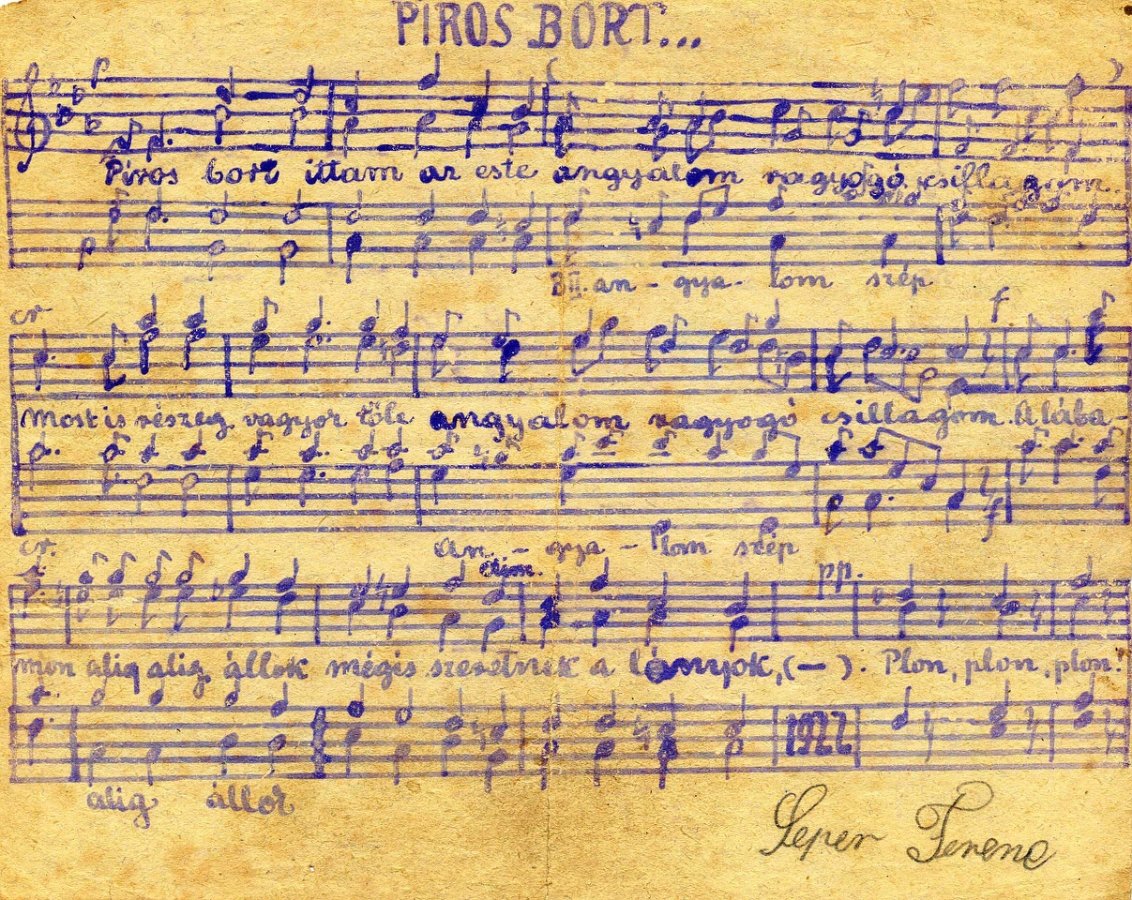 PIROS BORT...
Piros bort ittam az este angyalom ragyogó csillagom.
BII. an - gya - lom szép
cr. f.
Most is részeg vagyok tőle angyalom ragyogó csillagom. A lába-
f
cr. An - gya - lom szép
pp.
mon alig alig állok mégis szeretnek a lányok, (—). Plon, plon, plon.
1922
alig állok
Seper Ferenc